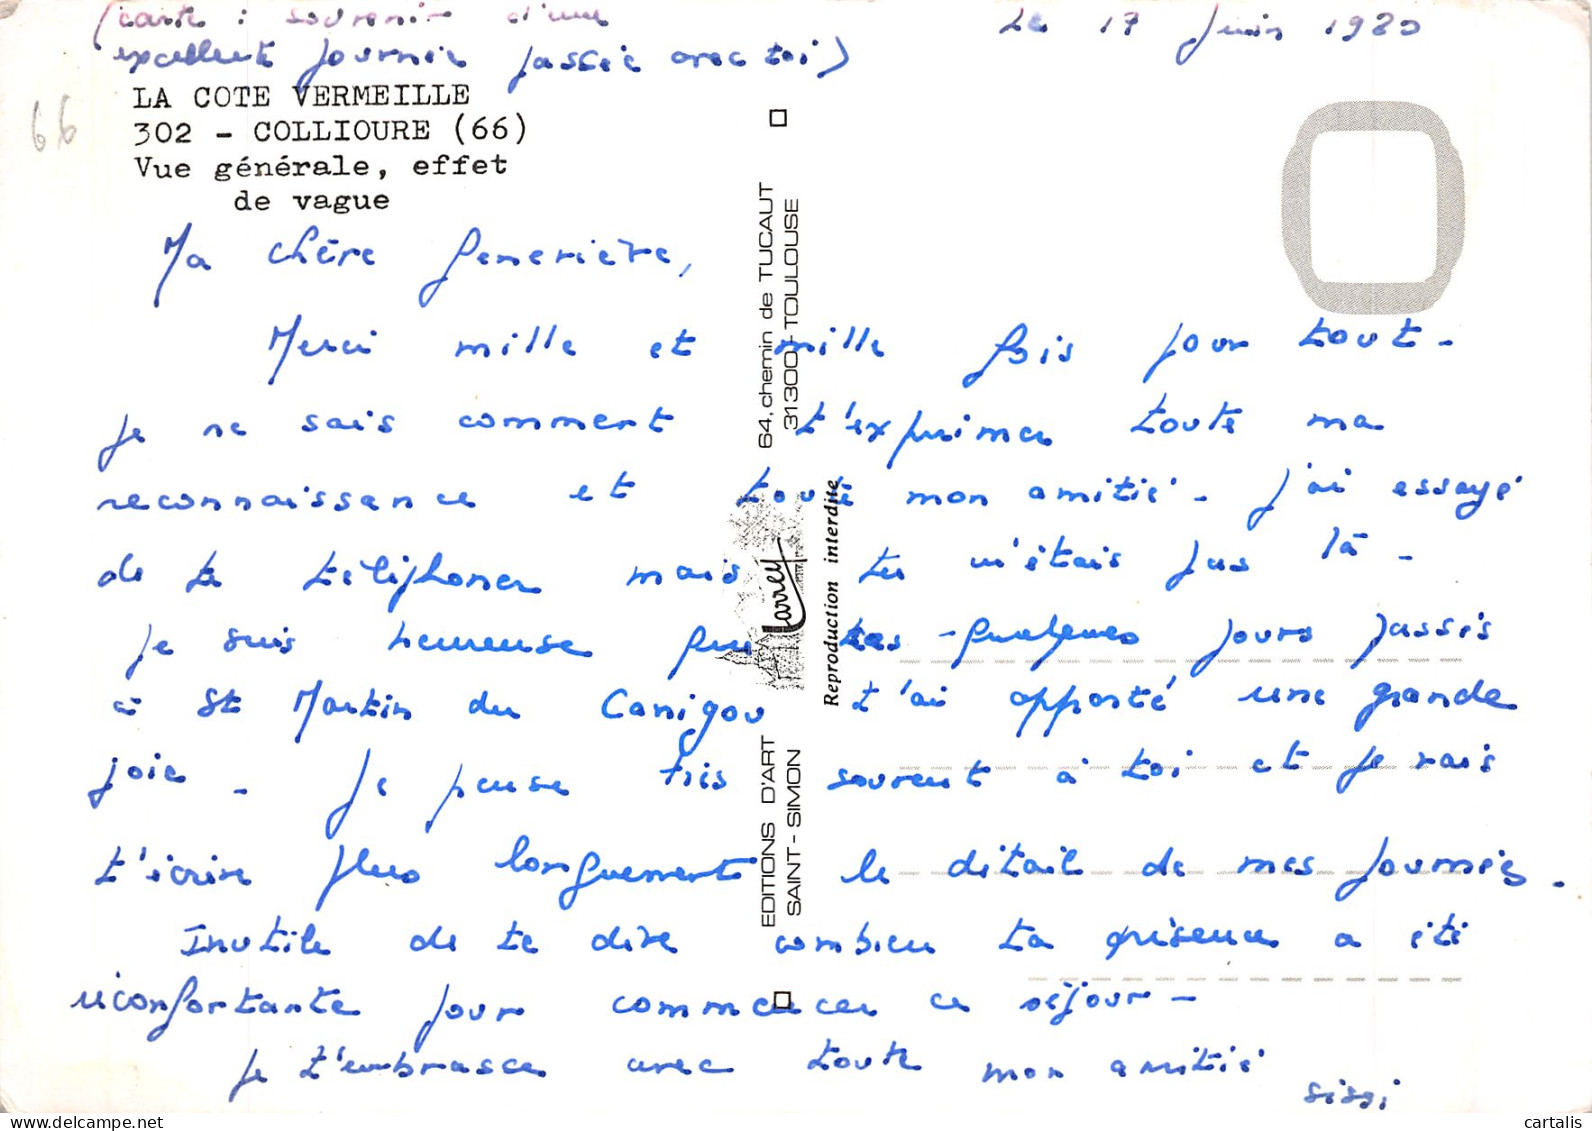 (carte : souvenir d'une
excellente journée passée avec toi)
Le 17 Juin 1980
66
LA COTE VERMEILLE
302 - COLLIOURE (66)
Vue générale, effet
de vague
Ma chère Geneviève,
Merci mille et mille fois pour tout -
Je ne sais comment t'exprimer toute ma
reconnaissance et toute mon amitié - J'ai essayé
de te téléphoner mais tu n'étais pas là -
Je suis heureuse que tes quelques jours passés
à St Martin du Canigou t'ai apporté une grande
joie - Je pense très souvent à toi et je vais
t'écrire plus longuement le détail de mes journées -
Inutile de te dire combien ta présence a été
réconfortante pour commencer ce séjour -
Je t'embrasse avec toute mon amitié
sissi
EDITIONS D'ART
SAINT-SIMON
64, chemin de TUCAUT
31300 - TOULOUSE
Larrey
Reproduction interdite
www.cartalis.com
delcampe.net
cartalis